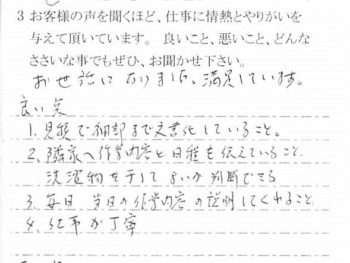 3 お客様の声を聞くほど、仕事に情熱とやりがいを
与えて頂いています。 良いこと、悪いこと、どんな
ささいな事でもぜひ、お聞かせ下さい。
お世話になりました。満足しています。
良い点
1. 見積で細部まで文書化していること。
2. 隣家へ作業内容と日程を伝えていること。
洗濯物を干してよいか判断できる
3. 毎日 当日の作業内容の説明してくれること
4. 仕事が丁寧